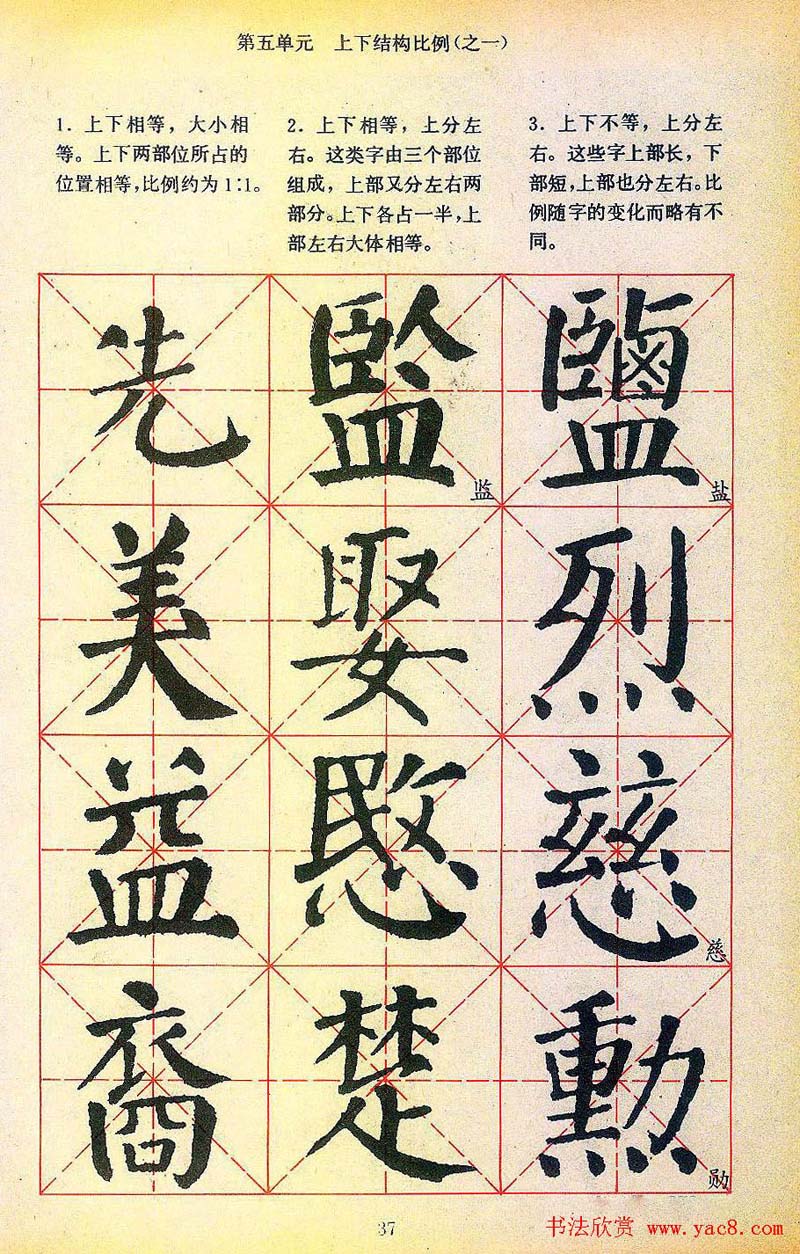 第五单元 上下结构比例(之一)
1. 上下相等，大小相
等。上下两部位所占的
位置相等，比例约为1∶1。
2. 上下相等，上分左
右。这类字由三个部位
组成，上部又分左右两
部分。上下各占一半，上
部左右大体相等。
3. 上下不等，上分左
右。这些字上部长，下
部短，上部也分左右。比
例随字的变化而略有不
同。
先 監 监 鹽 盐
美 娶 烈
益 愍 慈 慈
裔 楚 勳 勋
37
书法欣赏 www.yac8.com